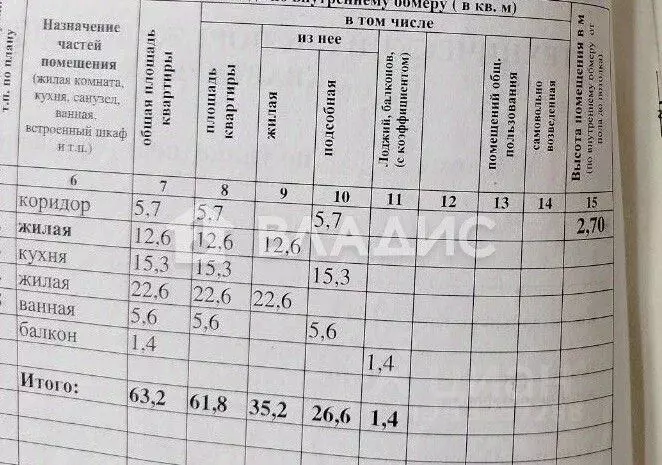 внутреннему обмеру ( в кв. м)
т.п. по плану
Назначение
частей
помещения
(жилая комната,
кухня, санузел,
ванная,
встроенный шкаф
и т.п.)
общая площадь
квартиры
в том числе
площадь
квартиры
из нее
жилая
подсобная
Лоджий, балконов,
(с коэффициентом)
помещений общ.
пользования
самовольно
возведенная
Высота помещения в м
(по внутреннему обмеру от
пола до потолка)
6 7 8 9 10 11 12 13 14 15
коридор 5,7 5,7 5,7 2,70
жилая 12,6 12,6 12,6
кухня 15,3 15,3 15,3
жилая 22,6 22,6 22,6
ванная 5,6 5,6 5,6
балкон 1,4 1,4
Итого: 63,2 61,8 35,2 26,6 1,4
ВЛАДИС